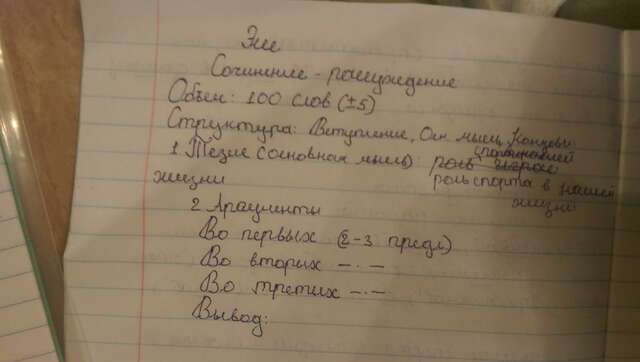 Эссе
Сочинение - рассуждение
Объем: 100 слов (±5)
Структура: Вступление, Осн. мысль, Концовк.
1 Тезис (основная мысль): роль
жизни роль спорта в нашей
жизни
2 Аргументы
Во первых (2-3 предл)
Во вторых -·-
Во третих -·-
Вывод: